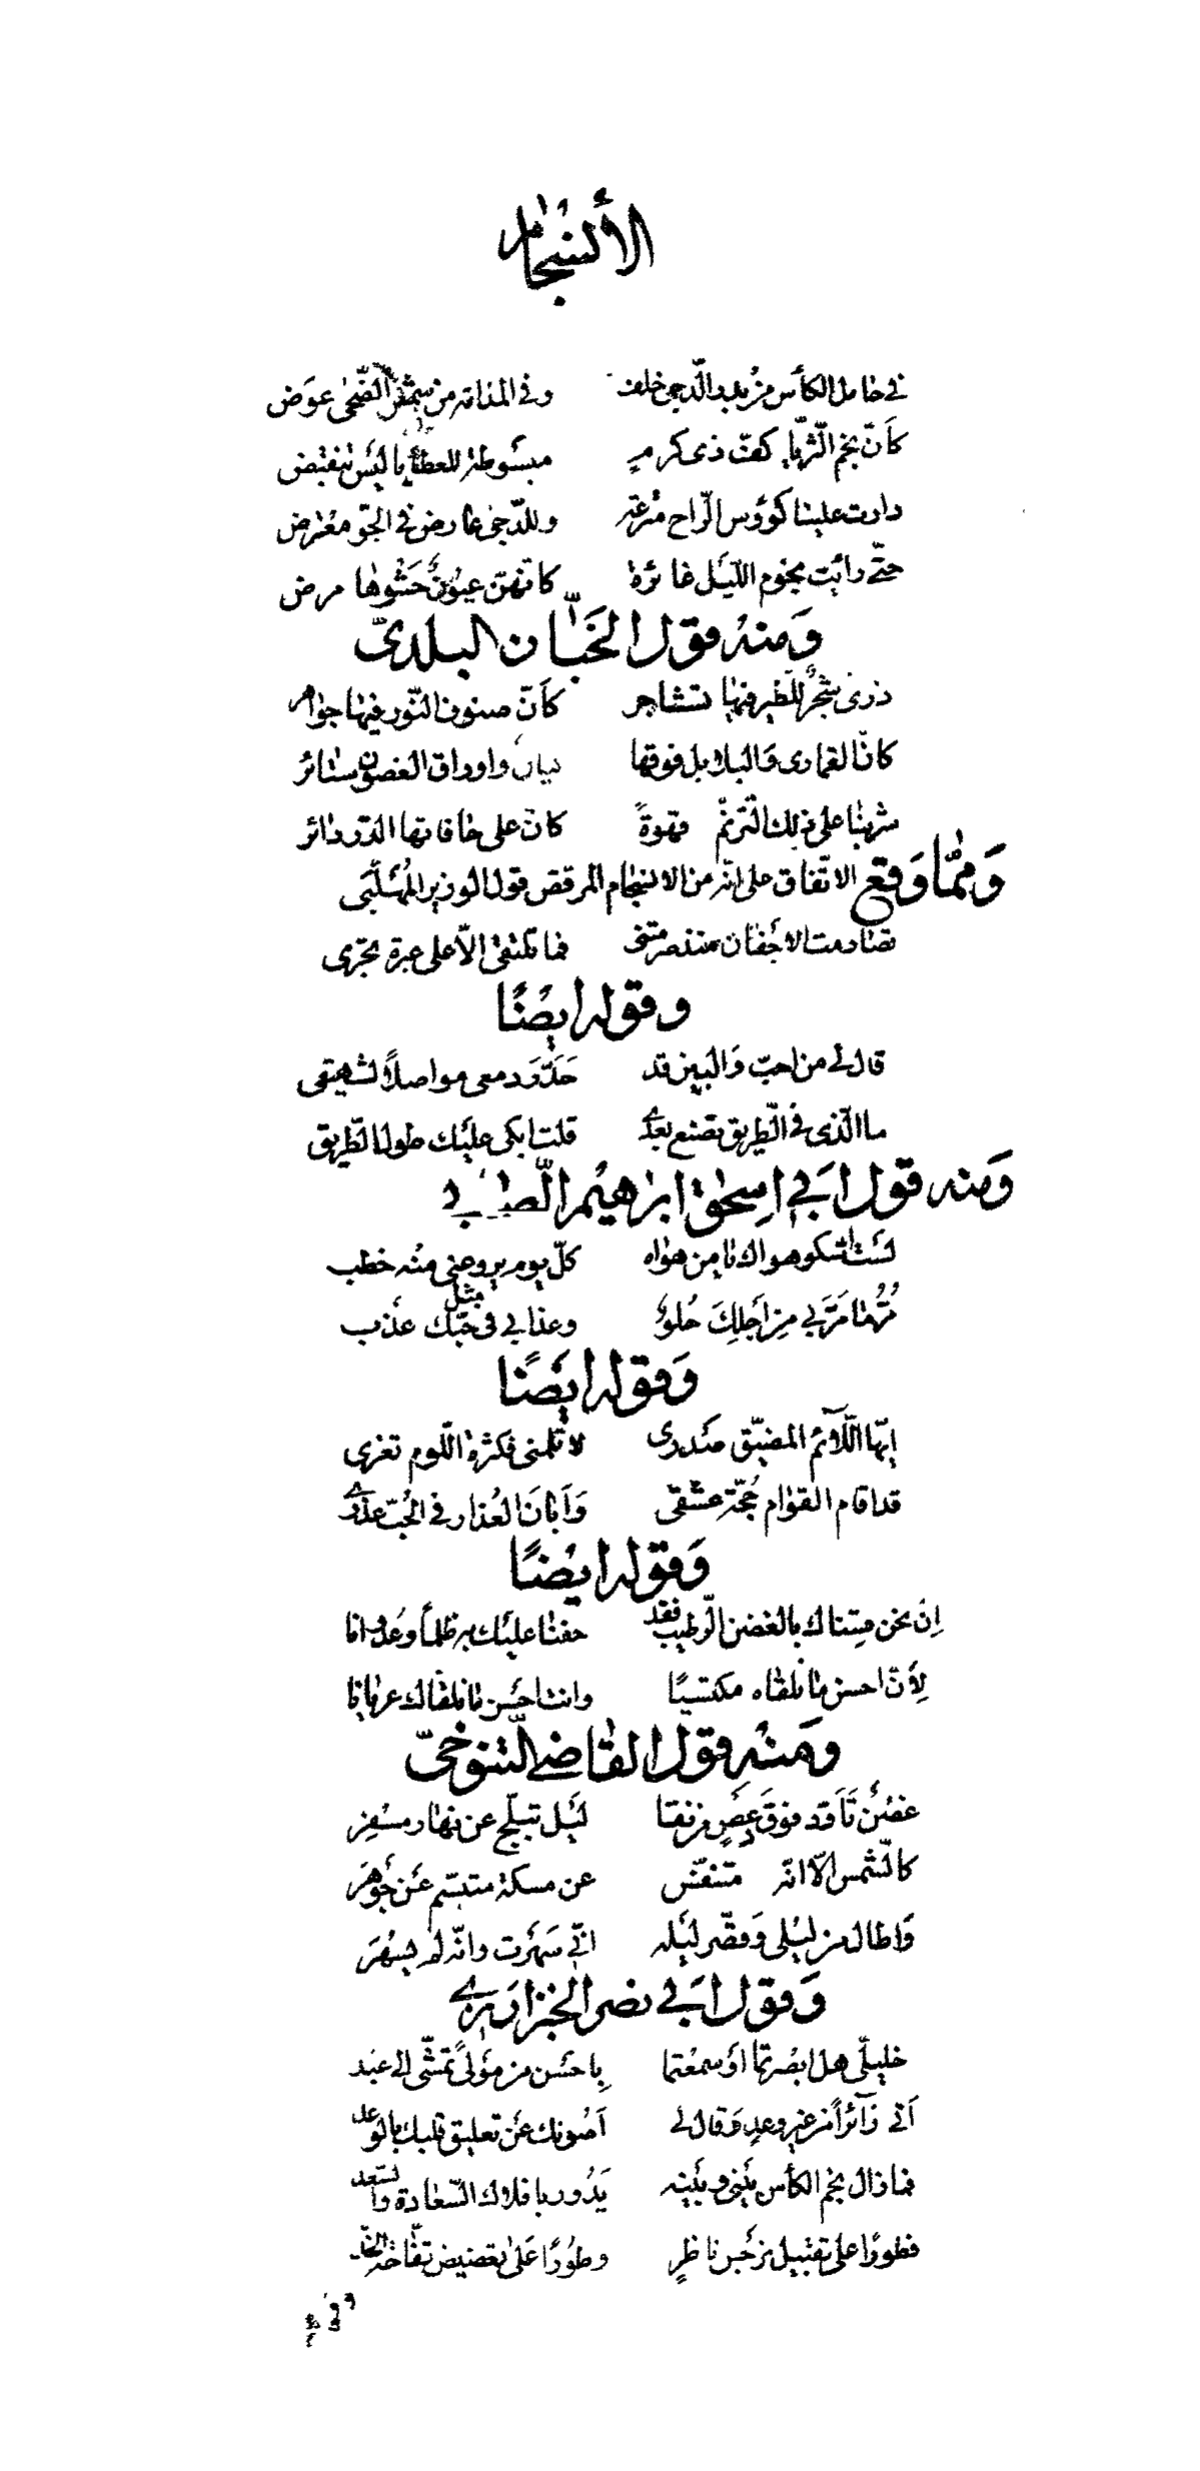 الأنسجام
في حامل الكأس من بدر الدجى خلف وفي المدامة من شمس الضّحى عوَض
كأنّ نجم الثّريّا كفّ ذى كرم مبسُوطة للعطايا ليس تنقبض
دارت علينا كؤوس الرّاح مترعة وللدّجى عارض في الجوّ معترض
حتّى رأيت نجوم اللّيل غائرة كانّهنّ عيُونٌ حَشْوها مرض
وَمنه قول الخبّاز البلدىّ
ذرى شجرٍ للطّير فيها تشاجر كَأنّ صنوف النّور فيها جواهر
كانّ القمارى وَالبلابل فوقها قيان واوراق الغصون ستائر
شربنا على ذلك التّرنّم قهوةً كانّ على حافاتها الدّر دائر
وَممّا وَقع الاتّفاق على انّه من الانسجام المرقص قول الوزير المُهلّبى
تصارمت الاجفان منذ صرمتنى فما تلتقى الّا على عبرة تجرى
وقوله ايضًا
قال لى من احبّ وَالبين قد جَدّ وَدمعى مواصلاً لشهيقى
ما الّذى في الطّريق تصنع بعدى قلت ابكى عليك طول الطّريق
وَمنه قول ابَى اسِحٰق ابرٰهيم
لست اشكو هواك يا من هواه كلّ يوم يروعنى منْه خطب
مُرّ ما مَرّ بى مِن اَجلكَ حُلوٌ وعذابى فى مثل حبّك عذب
وَقوله ايضًا
ايّها اللّآئم المضيّق صَدرى لا تلمنى فكثرة اللّوم تغرى
قد اقام القوام حُجّة عشقى وَاَبان العُذار فى الحُبّ عذرى
وَقوله ايضًا
اِن نحن قسناك بالغصن الرّطيب فقد حفنا عليك به ظلماً وعُدوانا
لِاَنّ احسن ما نلقاه مكتسيًا وانت احسن ما نلقاك عريانا
وَمنْهِ قول القاضى التّنوخىّ
غصْنٌ تَأوّد فوقَ دعصٍ من نقا ليَل تبلّج عن نهار مسْفِر
كالشّمس الّا انّه متنفّس عن مسكة متبسّم عَن جَوهَر
وَاطال من ليلى وَقصّر ليله انّى سَهرت وانّه لم يسهَر
وَقول ابَى نصر الخبزارزى
خليلىّ هل ابصرتما اوْ سمعْتما بِاحسَن من موْلىً تمشّى الى عبْد
اَتى زآئراً من غير وعدٍ وَقال لى اَصُونك عَن تعليق قلبك بالوعد
فما زال نجم الكأس بَيْنى وبيْنه يَدُور بافلاك السّعادة والسّعد
فطورًا على تقبيل نرجس ناظرٍ وطَورًا عَلى تعضيض تفّاحة الخدّ